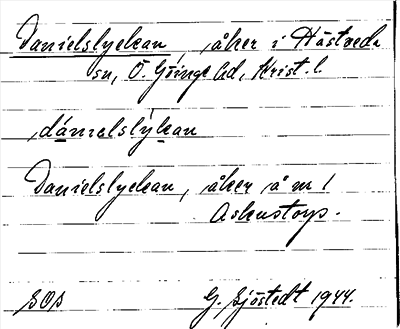 Danielslyckan, åker i Hästveda
sn, Ö. Göinge hd, Krist. l.
dánielslýkan
Danielslyckan, åker å n:r 1
Askustorp.
SOS G. Sjöstedt 1944.